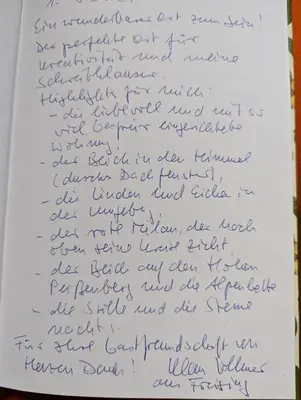 Ein wunderbarer Ort zum Sein!
Der perfekte Ort für
Kreativität und meine
Schreibklausur.
Highlights für mich:
- die liebevoll und mit so
viel Gespür eingerichtete
Wohnung,
- der Blick in den Himmel
(durchs Dachfenster),
- die Linden und Eichen in
der Umgebung,
- der rote Milan, der hoch
oben seine Kreise zieht,
- der Blick auf den Hohen
Peißenberg und die Alpenkette
- die Stille und die Sterne
nachts.
Für Ihre Gastfreundschaft von
Herzen Dank!
aus Freising